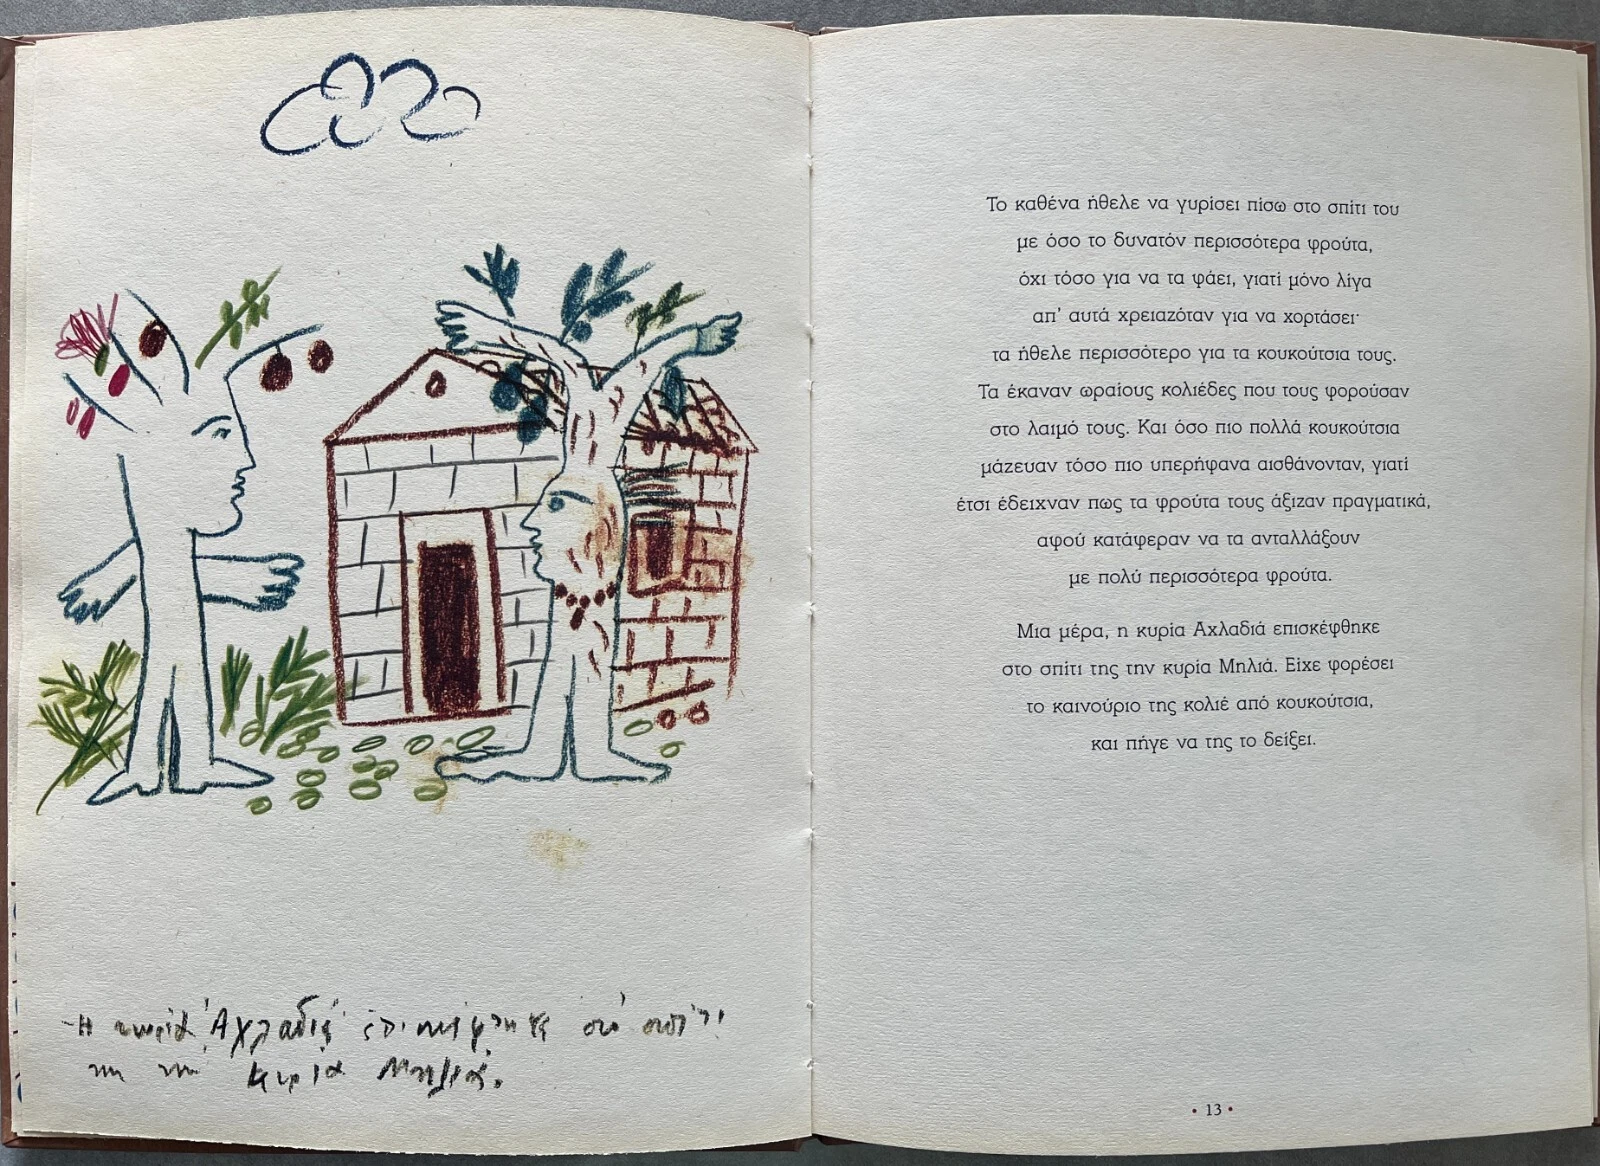 Η κυρία Ἀχλαδιά ἐπισκέφτηκε στό σπίτι
της την κυρία Μηλιά.
Το καθένα ήθελε να γυρίσει πίσω στο σπίτι του
με όσο το δυνατόν περισσότερα φρούτα,
όχι τόσο για να τα φάει, γιατί μόνο λίγα
απ' αυτά χρειαζόταν για να χορτάσει·
τα ήθελε περισσότερο για τα κουκούτσια τους.
Τα έκαναν ωραίους κολιέδες που τους φορούσαν
στο λαιμό τους. Και όσο πιο πολλά κουκούτσια
μάζευαν τόσο πιο υπερήφανα αισθάνονταν, γιατί
έτσι έδειχναν πως τα φρούτα τους άξιζαν πραγματικά,
αφού κατάφεραν να τα ανταλλάξουν
με πολύ περισσότερα φρούτα.
Μια μέρα, η κυρία Αχλαδιά επισκέφθηκε
στο σπίτι της την κυρία Μηλιά. Είχε φορέσει
το καινούριο της κολιέ από κουκούτσια,
και πήγε να της το δείξει.
• 13 •